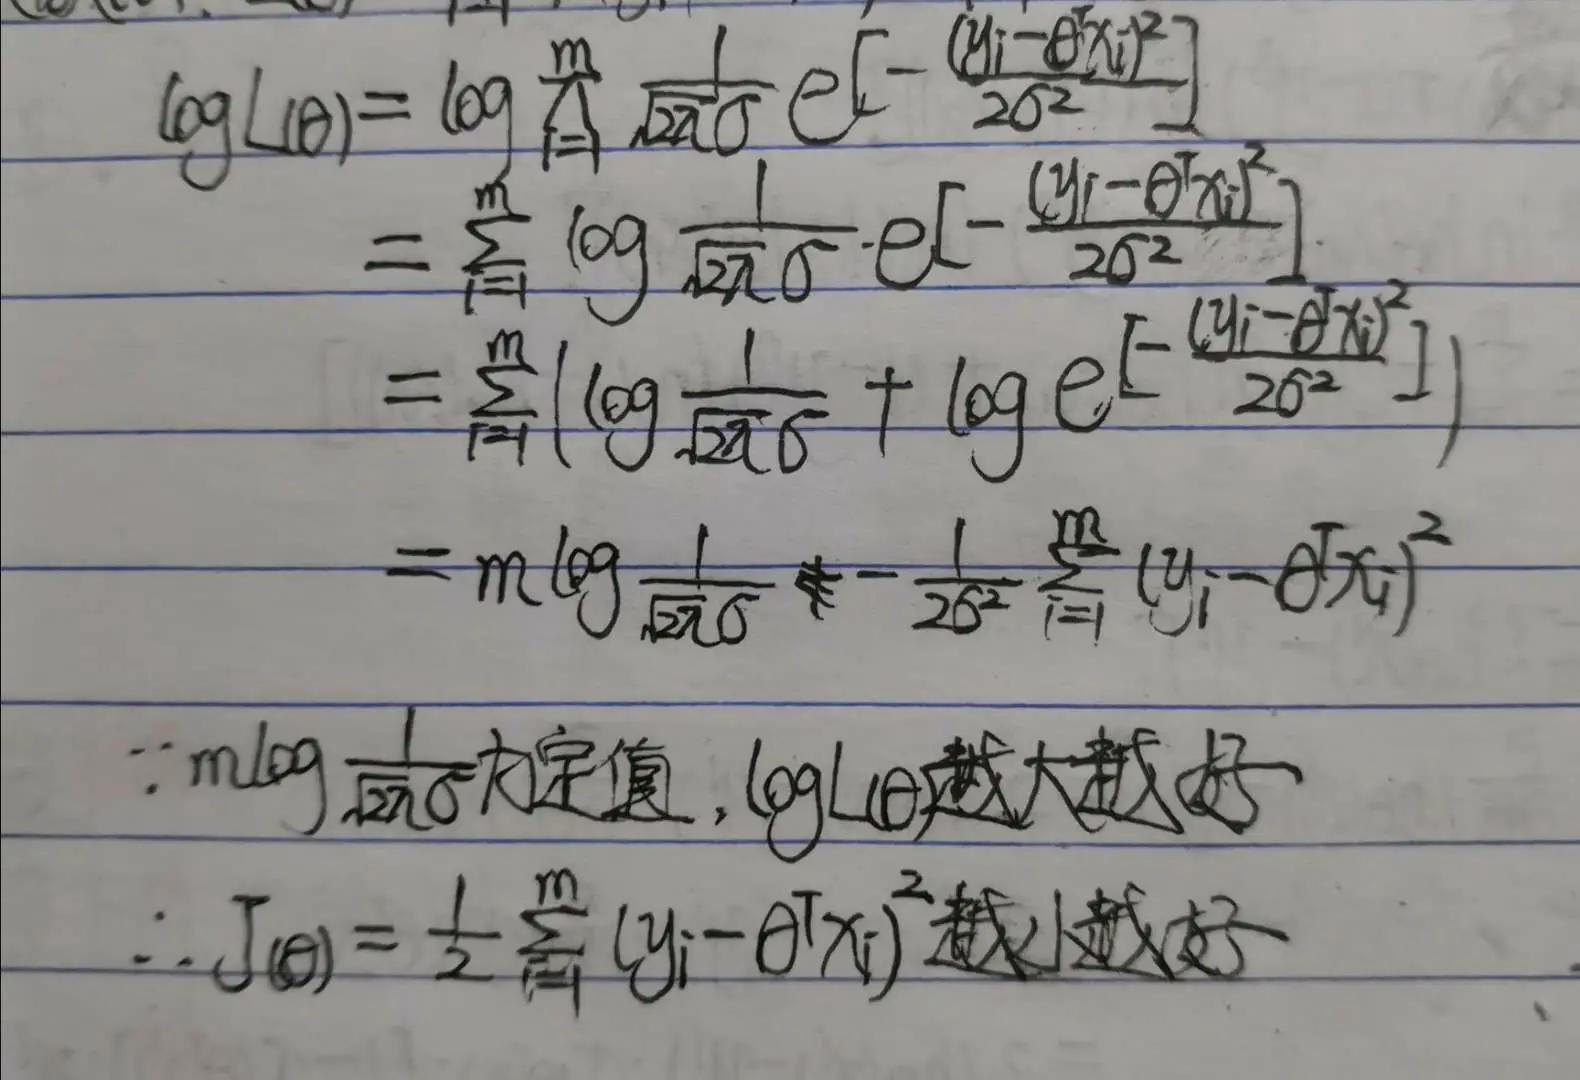 logL(θ) = log ∏_{i=1}^{m} \frac{1}{\sqrt{2π}σ} e[-\frac{(y_i-θ^Tx_i)^2}{2σ^2}]
= ∑_{i=1}^{m} log \frac{1}{\sqrt{2π}σ} · e[-\frac{(y_i-θ^Tx_i)^2}{2σ^2}]
= ∑_{i=1}^{m} (log \frac{1}{\sqrt{2π}σ} + log e^{[-\frac{(y_i-θ^Tx_i)^2}{2σ^2}]})
= m log \frac{1}{\sqrt{2π}σ} - \frac{1}{2σ^2} ∑_{i=1}^{m} (y_i-θ^Tx_i)^2
∵ mlog \frac{1}{\sqrt{2π}σ} 为定值, logL(θ)越大越好
∴ J(θ) = \frac{1}{2} ∑_{i=1}^{m} (y_i-θ^Tx_i)^2 越小越好